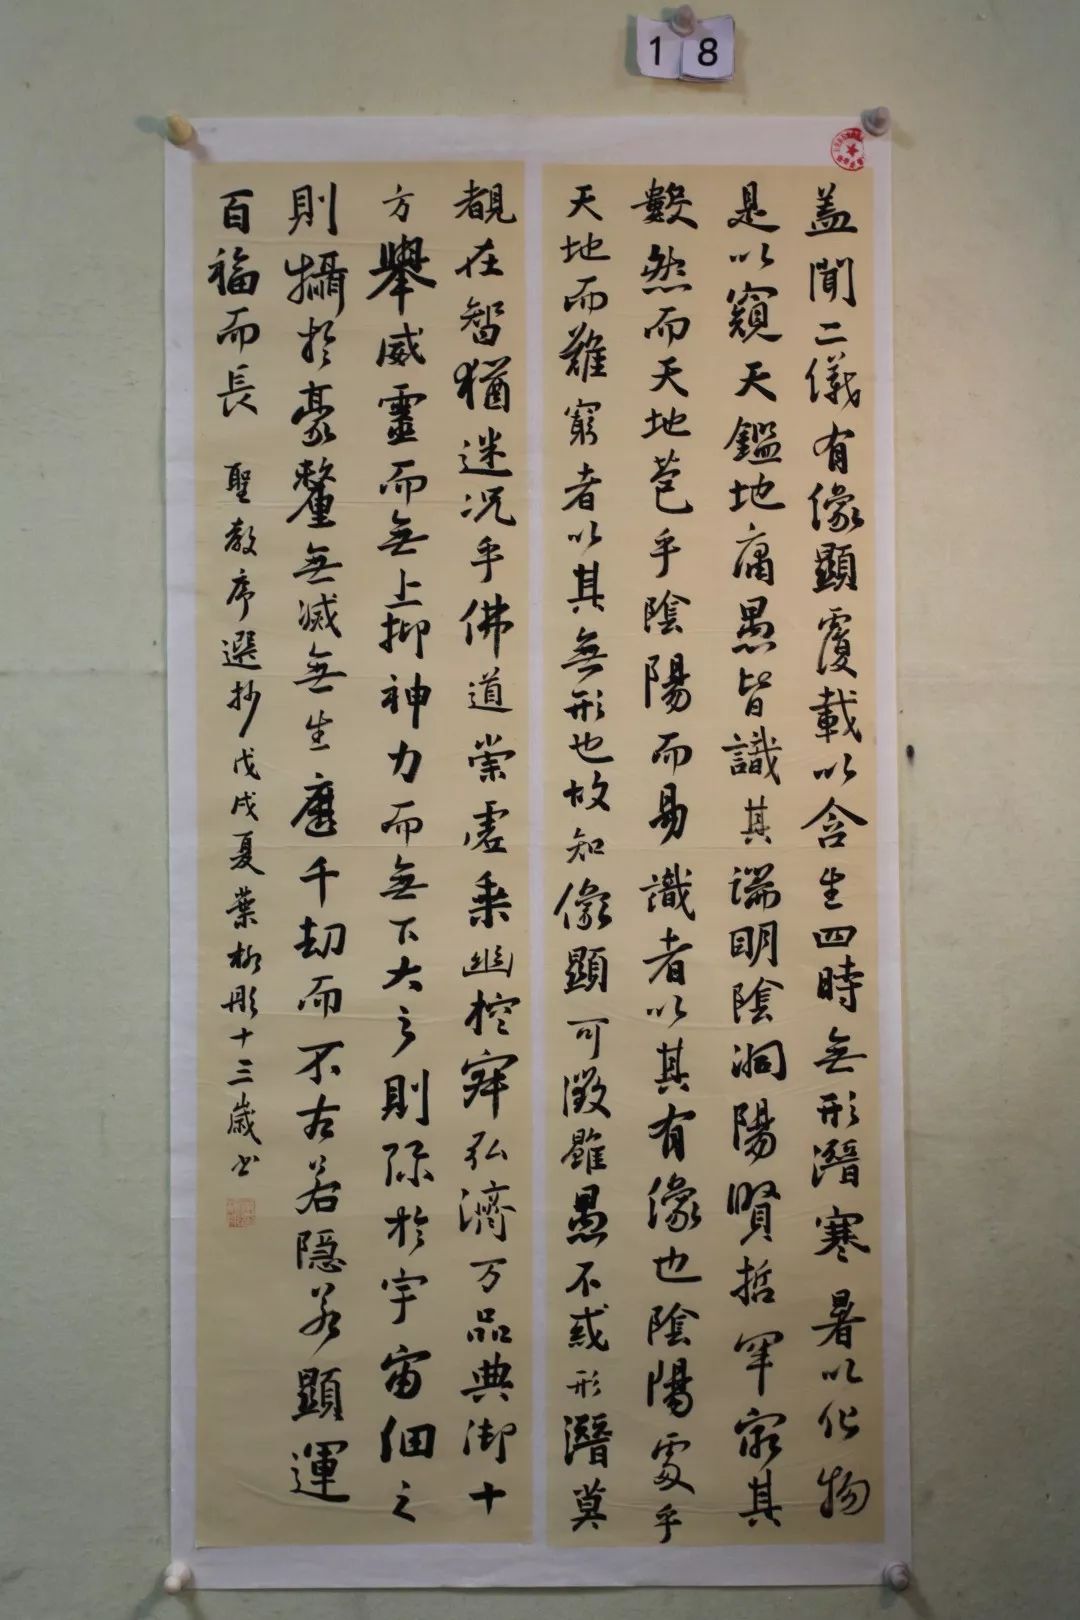 18
蓋聞二儀有像顯覆載以含生四時無形潛寒暑以化物
是以窺天鑑地庸愚皆識其端明陰洞陽賢哲罕窮其
數然而天地苞乎陰陽而易識者以其有像也陰陽處乎
天地而難窮者以其無形也故知像顯可徵雖愚不惑形潛莫
覩在智猶迷況乎佛道崇虛乘幽控寂弘濟万品典御十
方舉威靈而無上抑神力而無下大之則彌於宇宙細之
則攝於豪釐無滅無生歷千劫而不古若隱若顯運
百福而長 聖教序選抄戊戌夏葉彤十三歲書